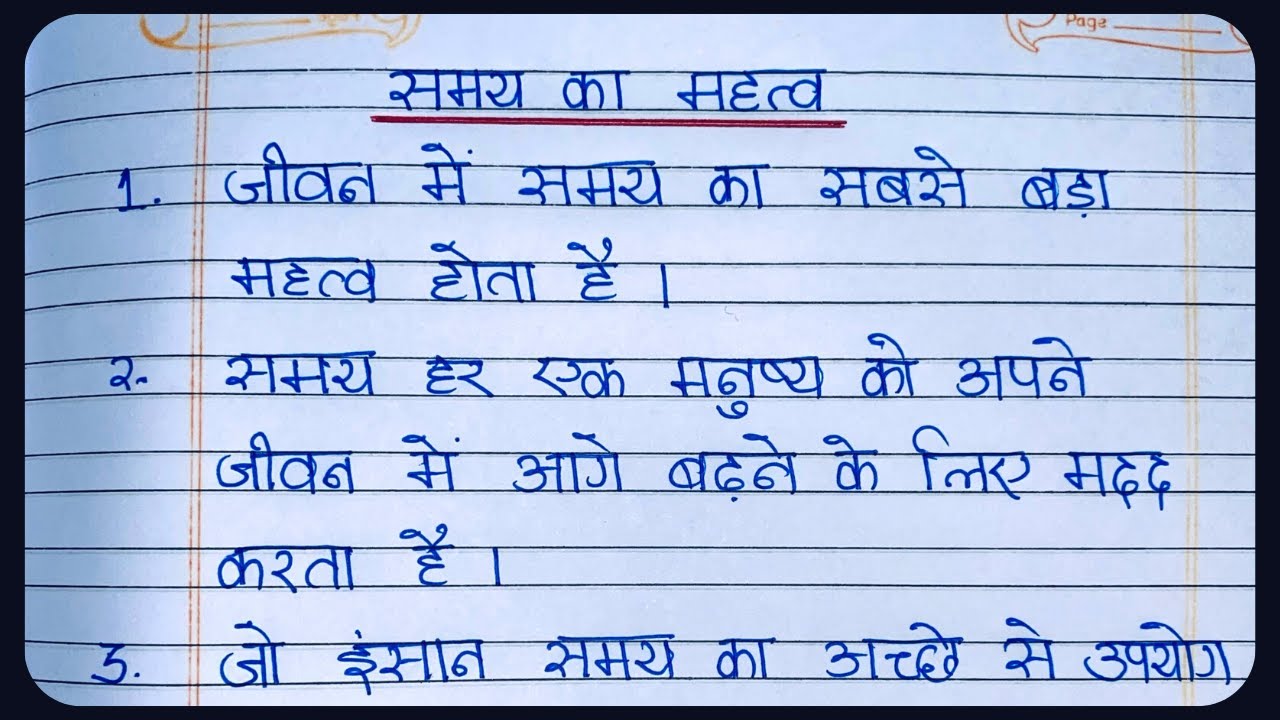 Page
समय का महत्व
1. जीवन में समय का सबसे बड़ा
महत्व होता है ।
2. समय हर एक मनुष्य को अपने
जीवन में आगे बढ़ने के लिए मदद
करता है ।
3. जो इंसान समय का अच्छे से उपयोग